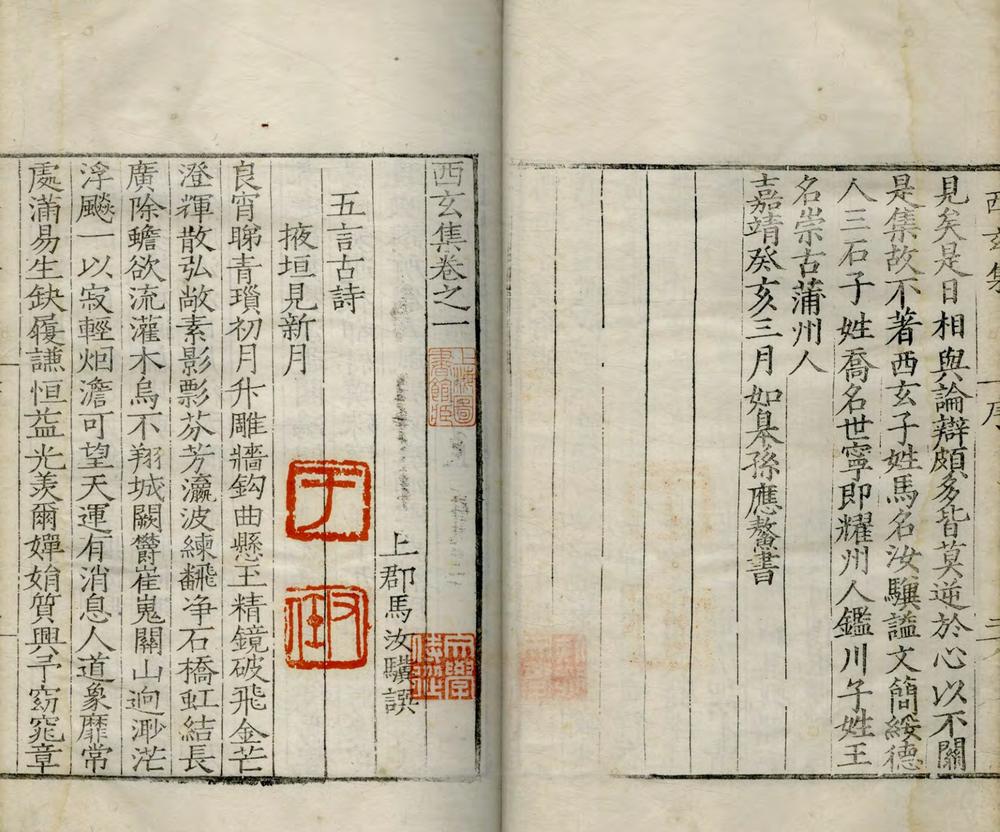 見矣是日相與論辯頗多皆莫逆於心以不關
是集故不著西玄子姓馬名汝驥謚文簡綏德
人三石子姓喬名世寧即耀州人鑑川子姓王
名崇古蒲州人
嘉靖癸亥三月如臯孫應鰲書
西玄集卷之一
上海圖書館藏
上郡馬汝驥譔
五言古詩
掖垣見新月
良宵睇青瑣初月升雕牆鈎曲懸玉精鏡破飛金芒
澄輝散弘敞素影彯芬芳瀛波練飜净石橋虹結長
廣除蟾欲流灌木烏不翔城闕欝崔嵬關山逈渺茫
浮飈一以寂輕烟澹可望天運有消息人道象靡常
處滿易生缺履謙恒益光羡爾嬋娟質興予窈窕章